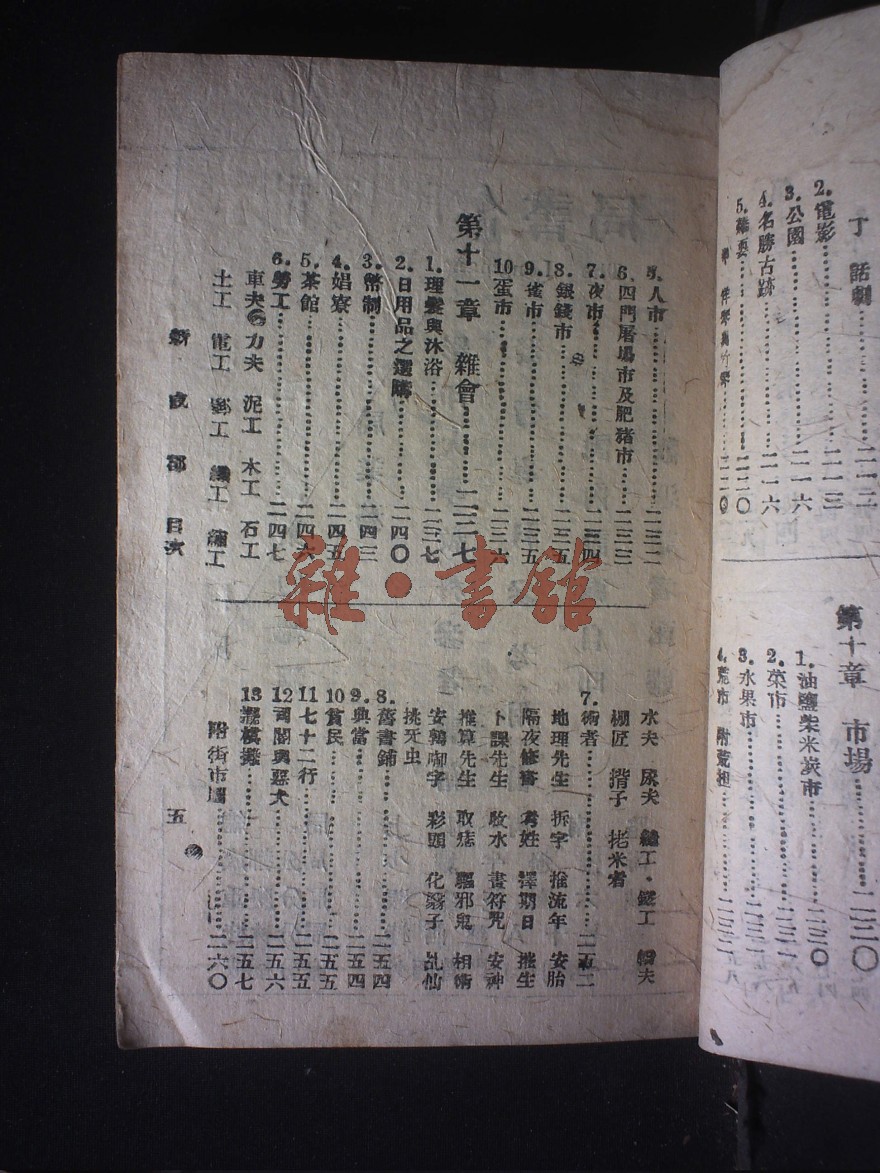 丁 話劇……二一二
2.電影……二一三
3.公園……二一六
4.名勝古跡……二一六
5.雜耍……二二〇
第十章 市場……二三〇
1.油鹽柴米炭市……二三〇
2.菜市
3.水果市
4.荒市 附荒担
5.人市……二三二
6.四門屠場市及肥猪市……二三三
7.夜市……二三四
8.銀錢市……二三五
9.雀市……二三五
10蛋市……二三六
第十一章 雜會……二三七
1.理髮與沐浴……二三七
2.日用品之選購……二四〇
3.幣制……二四三
4.娼寮……二四五
5.茶館……二四六
6.勞工……二四七
車夫 力夫 泥工 木工 石工
土工 電工
水夫 尿夫
棚匠 揹子 㧯米者
7.術者……二五二
地理先生 拆字 推流年 安胎
隔夜修書 擇期日 推生
卜課先生 收水 畫符咒 安神
推算先生 取痣 驅邪鬼 相術
彩頭 乩仙
挑牙虫
8.舊書鋪……二五四
9.典當……二五四
10貧民……二五五
11七十二行……二五五
12司閽與惡犬……二五六
13……二五七
附街市圖……二六〇
新成都 目次 五
雜·書館